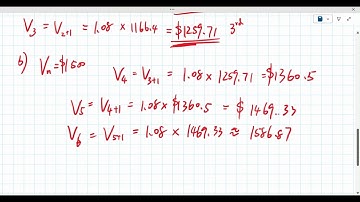 V3 = V2+1 = 1.08 × 1166.4 = $1259.71 3rd
b) Vn = $1500
V4 = V3+1 = 1.08 × 1259.71 = $1360.5
V5 = V4+1 = 1.08 × $1360.5 = $1469.33
V6 = V5+1 = 1.08 × 1469.33 ≈ 1586.87